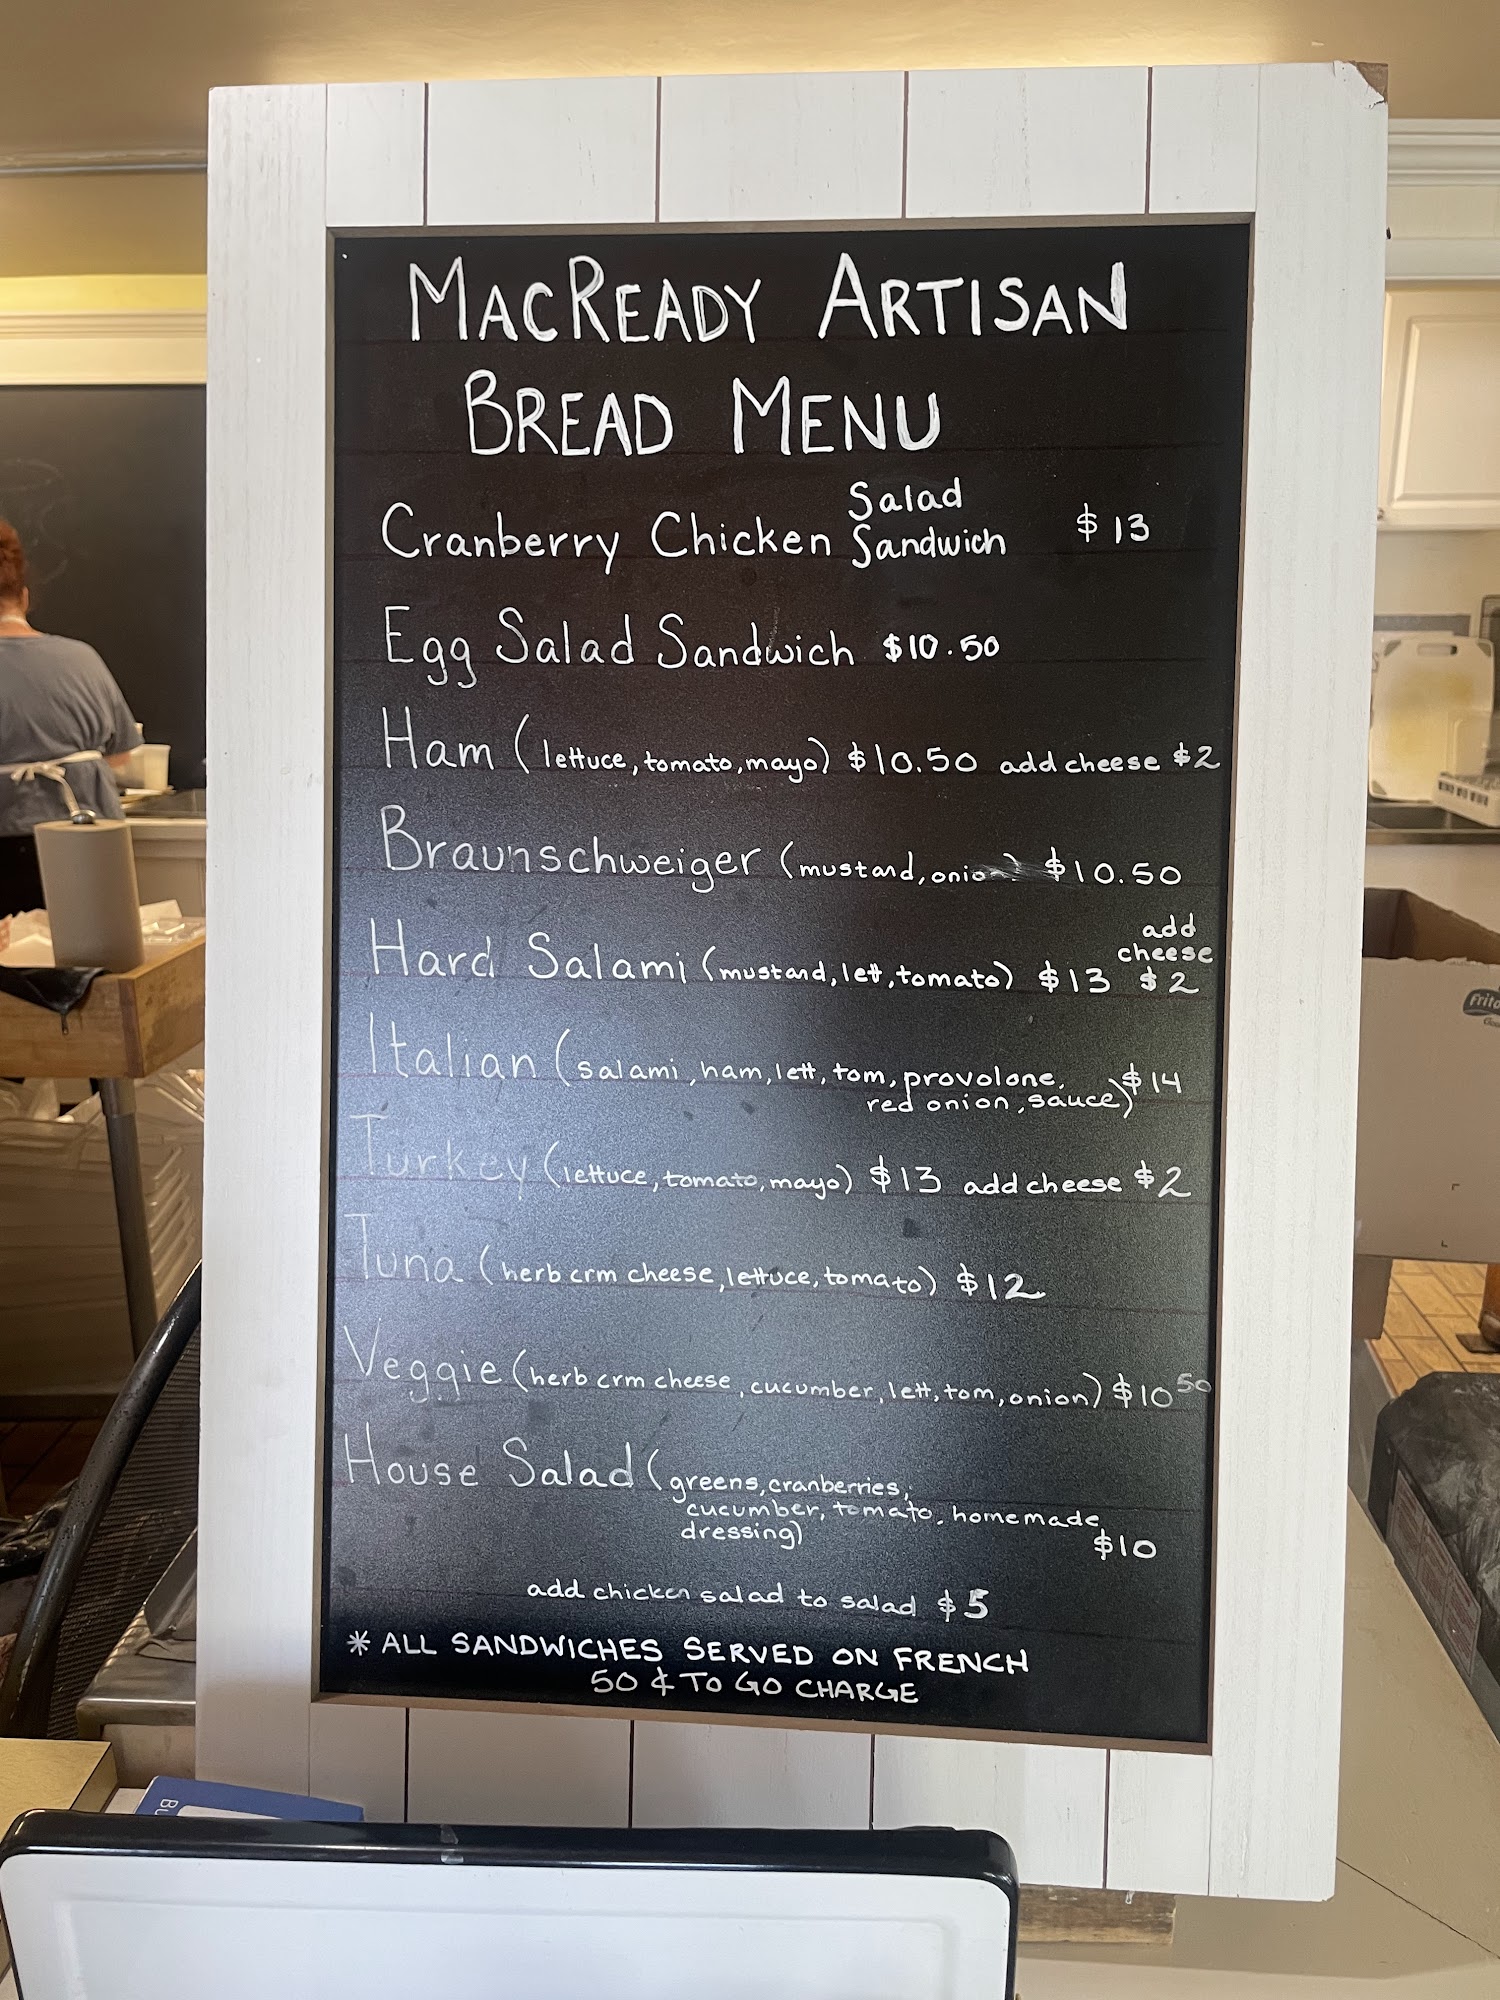 MACREADY ARTISAN
BREAD MENU
Cranberry Chicken Salad Sandwich $13
Egg Salad Sandwich $10.50
Ham (lettuce, tomato, mayo) $10.50 add cheese $2
Braunschweiger (mustard, onion) $10.50
Hard Salami (mustard, lett, tomato) $13 add cheese $2
Italian (salami, ham, lett, tom, provolone, $14
red onion, sauce)
Turkey (lettuce, tomato, mayo) $13 add cheese $2
Tuna (herb crm cheese, lettuce, tomato) $12
Veggie (herb crm cheese, cucumber, lett, tom, onion) $10 50
House Salad (greens, cranberries,
cucumber, tomato, homemade
dressing) $10
add chicken salad to salad $5
* ALL SANDWICHES SERVED ON FRENCH
50 ¢ TO GO CHARGE